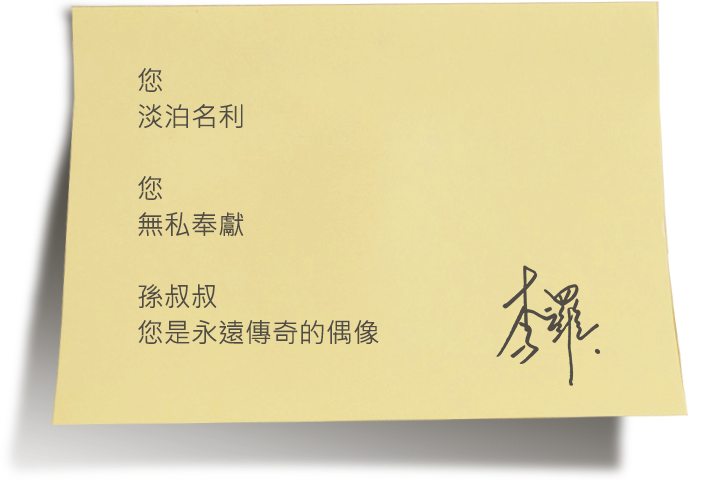 您
淡泊名利
您
無私奉獻
孫叔叔
您是永遠傳奇的偶像
李羅